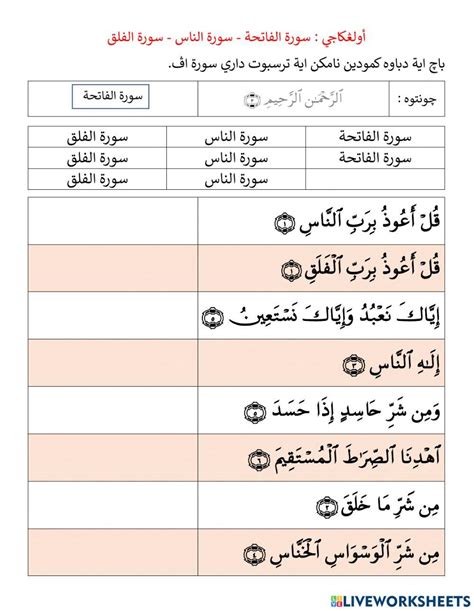 أولڠكاجي : سورة الفاتحة - سورة الناس - سورة الفلق
باچ اية دباوه كمودين نامكن اية ترسبوت داري سورة اڤ.
چونتوه : ٱلرَّحْمَٰنِ ٱلرَّحِيمِ ٣ سورة الفاتحة
سورة الفاتحة سورة الناس سورة الفلق
سورة الفاتحة سورة الناس سورة الفلق
سورة الناس سورة الفلق
قُلْ أَعُوذُ بِرَبِّ ٱلنَّاسِ ١
قُلْ أَعُوذُ بِرَبِّ ٱلْفَلَقِ ١
إِيَّاكَ نَعْبُدُ وَإِيَّاكَ نَسْتَعِينُ ٥
إِلَٰهِ ٱلنَّاسِ ٣
وَمِن شَرِّ حَاسِدٍ إِذَا حَسَدَ ٥
ٱهْدِنَا ٱلصِّرَٰطَ ٱلْمُسْتَقِيمَ ٦
مِن شَرِّ مَا خَلَقَ ٢
مِن شَرِّ ٱلْوَسْوَاسِ ٱلْخَنَّاسِ ٤
LIVEWORKSHEETS